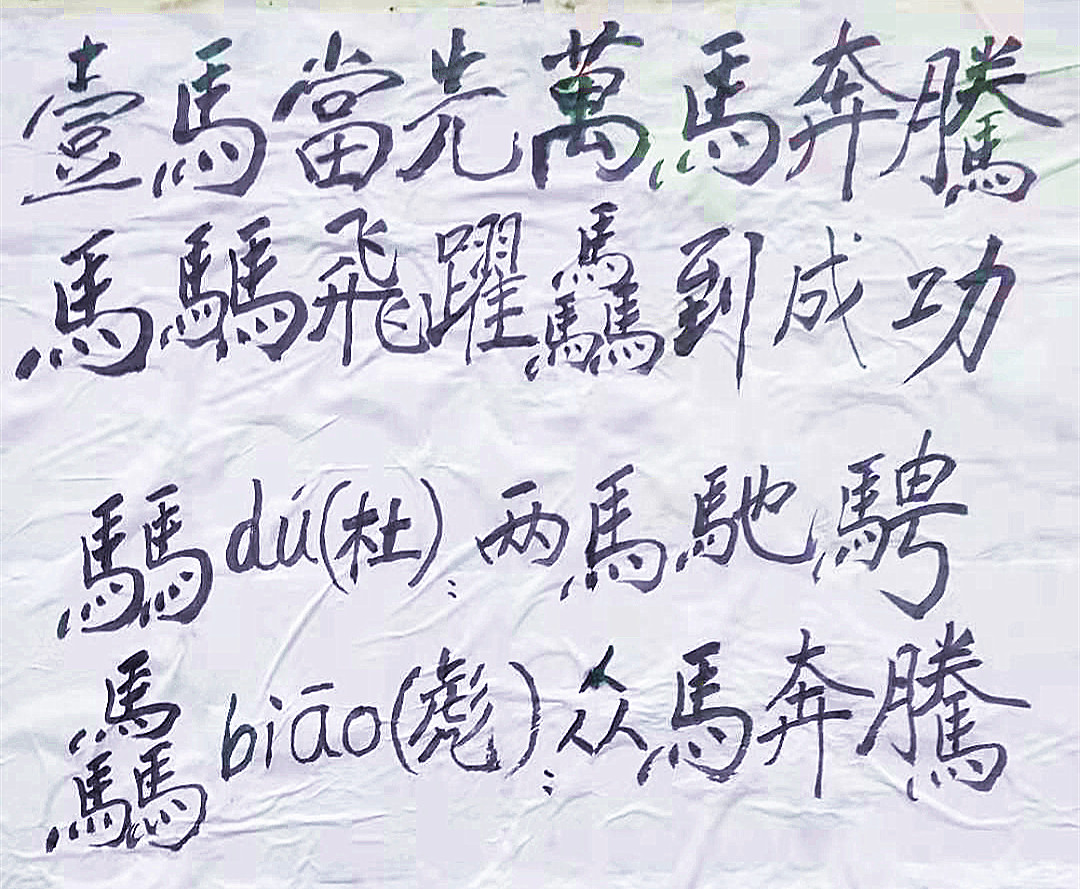 壹馬當先萬馬奔騰
馬䮾飛躍驫到成功
䮾dú(杜):两馬馳騁
驫biāo(彪):众馬奔騰